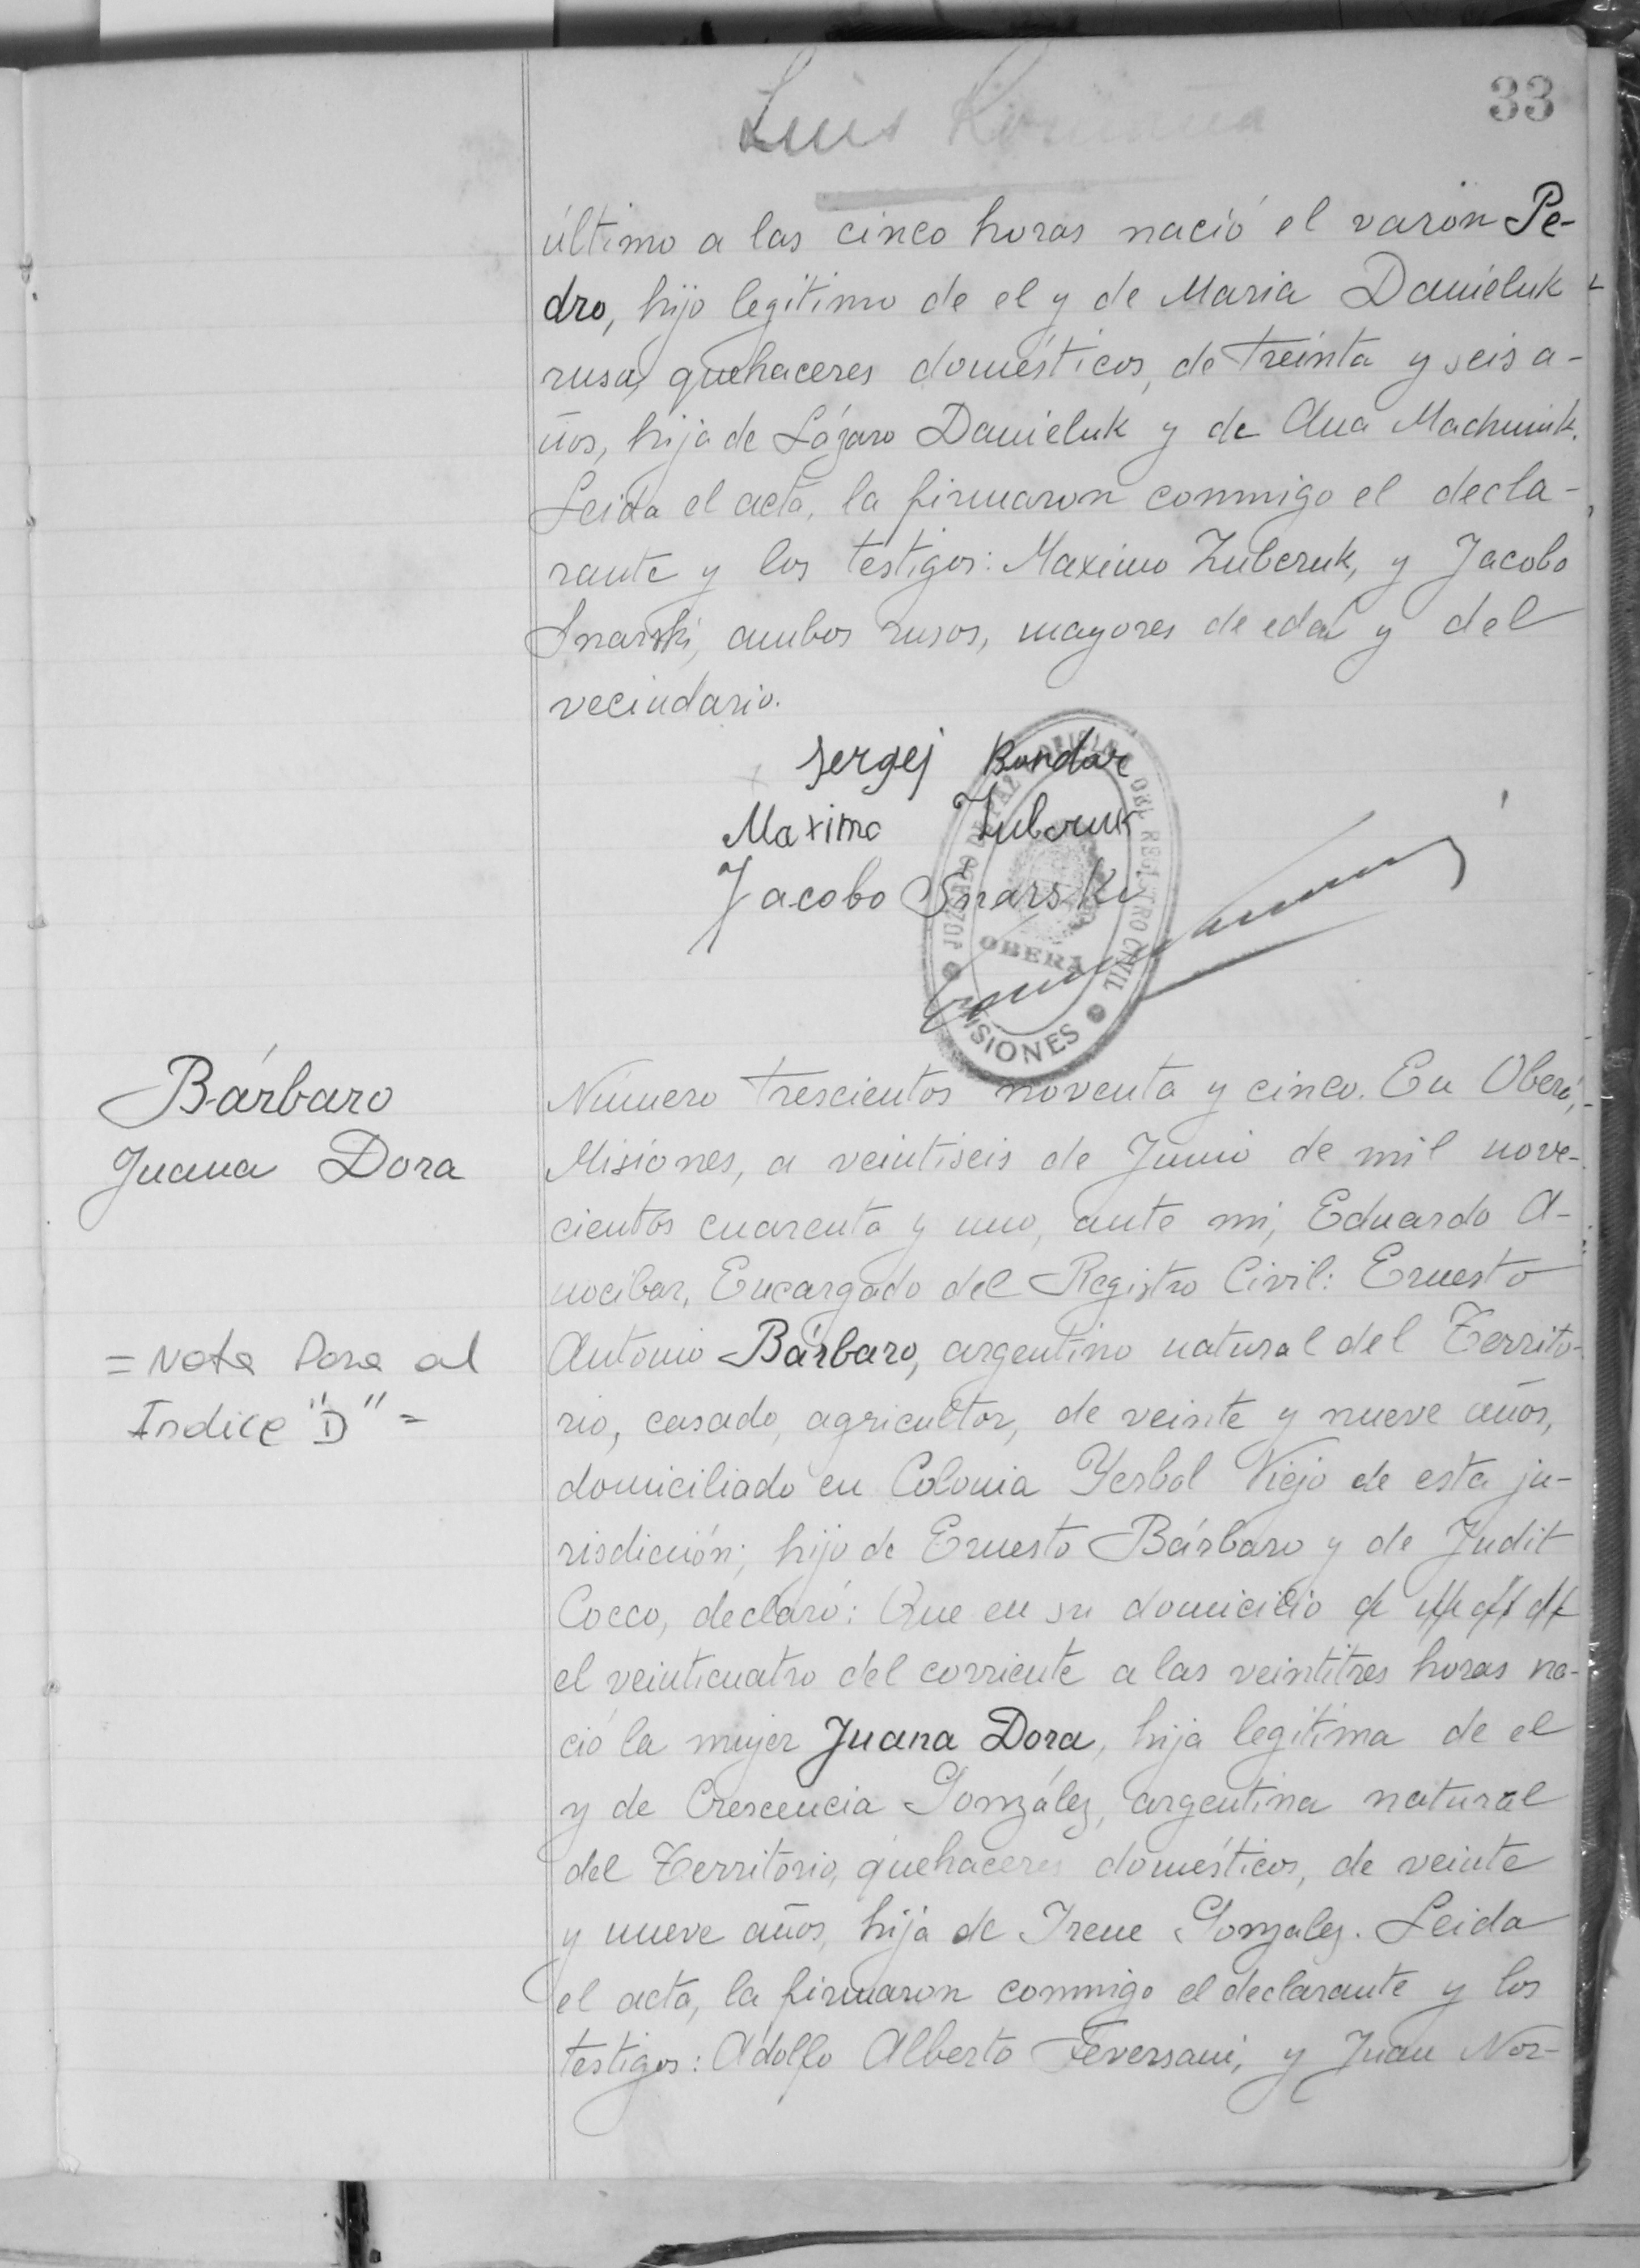 33
Luis
último a las cinco horas nació el varón Pe-
dro, hijo legítimo de el y de Maria Danieluk
rusa, quehaceres domésticos, de treinta y seis a-
ños, hija de Lázaro Danieluk y de Ana
Leida el acta, la firmaron conmigo el decla-
rante y los testigos: Maximo Zuberuk, y Jacobo
Snarski, ambos rusos, mayores de edad y del
vecindario.
Sergej Bondar
Maximo Zuberuk
Jacobo Snarski
JUZGADO DE PAZ OFICINA DEL REGISTRO CIVIL
OBERÁ
MISIONES
Bárbaro
Juana Dora
Número trescientos noventa y cinco. En Oberá,
Misiones, a veintiseis de Junio de mil nove-
cientos cuarenta y uno, ante mi, Eduardo A-
nocibar, Encargado del Registro Civil: Ernesto
Antonio Bárbaro, argentino natural del Territo-
rio, casado, agricultor, de veinte y nueve años,
domiciliado en Colonia Yerbal Viejo de esta ju-
risdicción; hijo de Ernesto Bárbaro y de Judit
Cocco, declaró: Que en su domicilio
el veinticuatro del corriente a las veintitres horas na-
ció la mujer Juana Dora, hija legítima de el
y de Crescencia González, argentina natural
del Territorio, quehaceres domésticos, de veinte
y nueve años, hija de Irene Gonzalez. Leida
el acta, la firmaron conmigo el declarante y los
testigos: Adolfo Alberto Feversani, y Juan Nor-
= Nota Pasa al
Indice "D" =